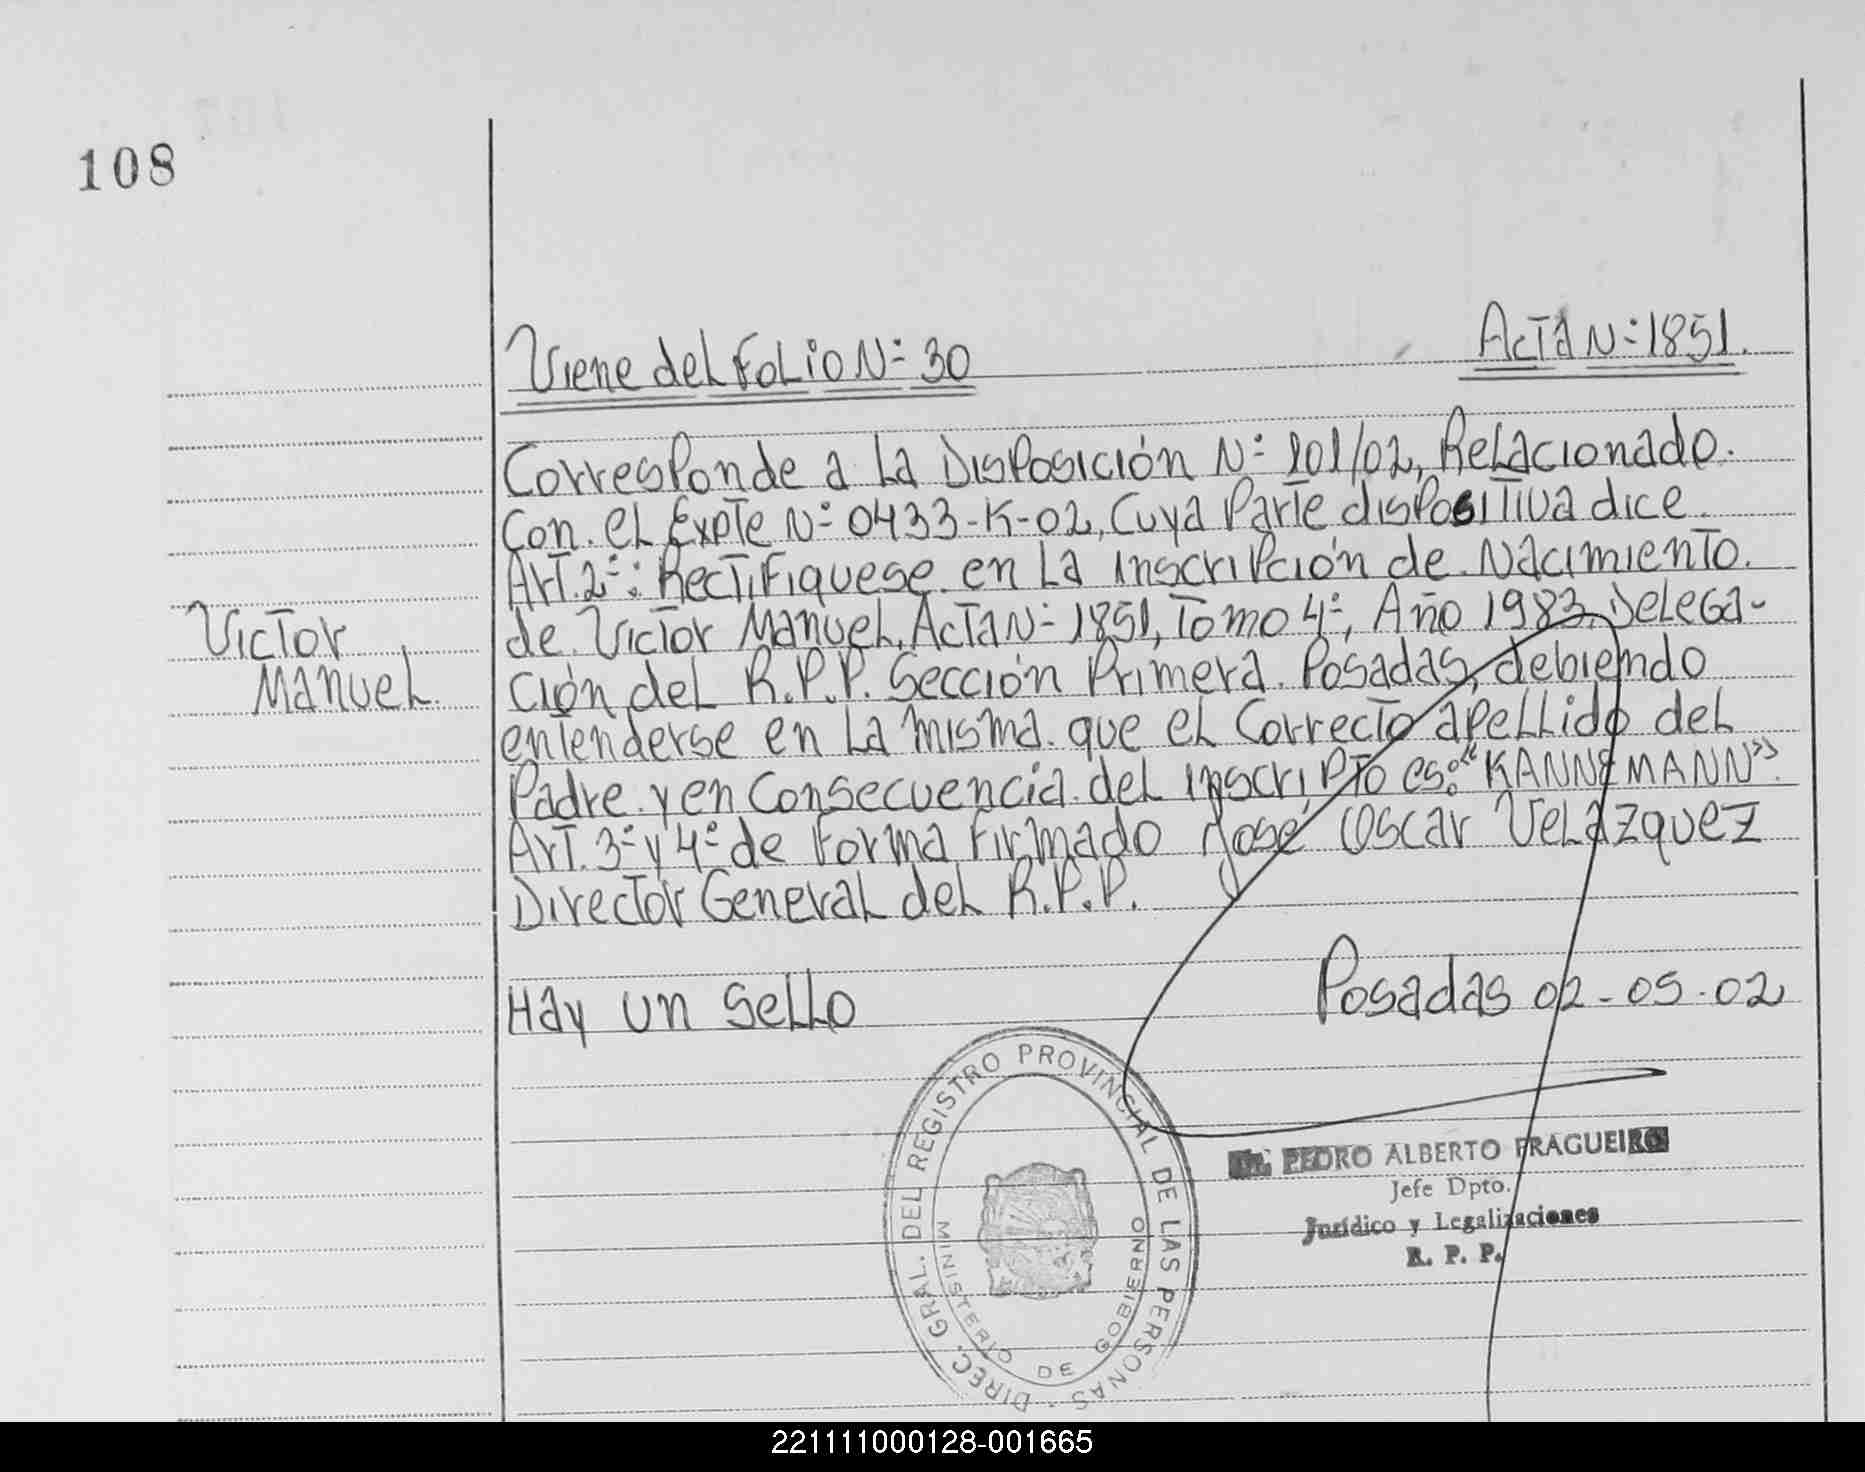 108
Viene del Folio N: 30
Acta N: 1851.
Corresponde a la Disposición N: 201/02, Relacionado.
Con. el Expte N: 0433-K-02, Cuya Parte dispositiva dice.
Art. 2º: Rectifiquese. en la inscripción de. Nacimiento.
Victor
Manuel.
de. Victor Manuel. Acta N: 1851, Tomo 4º, Año 1983. Delega-
ción del R.P.P. Sección Primera. Posadas, debiendo
entenderse en la misma. que el Correcto apellido del
Padre. y en Consecuencia. del inscripto es: "KANNEMANN".
Art. 3º y 4º de Forma Firmado José Oscar Velázquez
Director General del R.P.P.
Hay un Sello
Posadas 02-05-02
DIREC. GRAL. DEL REGISTRO PROVINCIAL DE LAS PERSONAS
MINISTERIO DE GOBIERNO
Dr. PEDRO ALBERTO FRAGUEIRO
Jefe Dpto.
Jurídico y Legalizaciones
R. P. P.
221111000128-001665